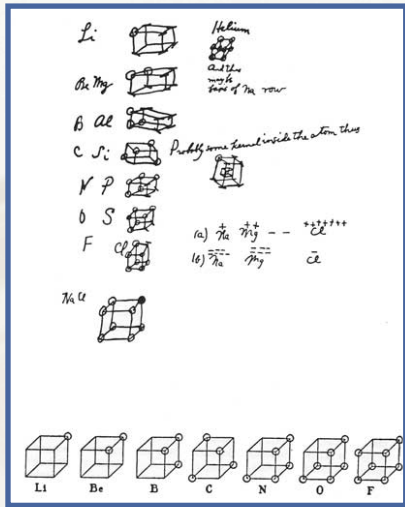 Li Helium
Be Mg And this
maybe
B Al base of Na row
C Si Probably some kernel inside the atom thus
N P
O S
F Cl
(a) Na Mg - - Cl
(b) Na Mg Cl
Na Cl
Li Be B C N O F